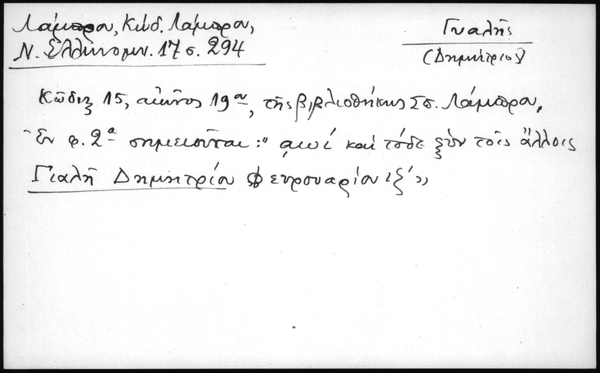 Λάμπρου, Κώδ. Λάμπρου,
Ν. Ἑλληνομν. 17 σ. 294
Γυαλῆς
(Δημήτριος)
Κῶδιξ 15, αἰῶνος 19ου, τῆς βιβλιοθήκης Σπ. Λάμπρου,
Ἐν φ. 2α σημειοῦται: " αωι καὶ τόδε ξὺν τοῖς ἄλλοις
Γιαλῆ Δημητρίου Φευρουαρίου ιξ´»